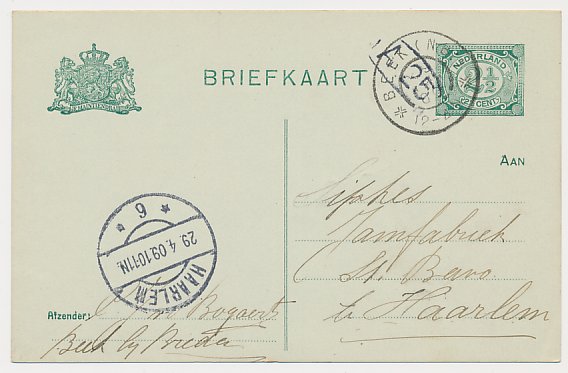 BRIEFKAART
JE MAINTIENDRAI
NEDERLAND
2½
CENT
BEEK (N.
25
12-
AAN
Jamfabriek
St. Bavo
b/ Haarlem
6
29.4.09.10-11N.
HAARLEM
Afzender:
Bogaert
Beek by Breda